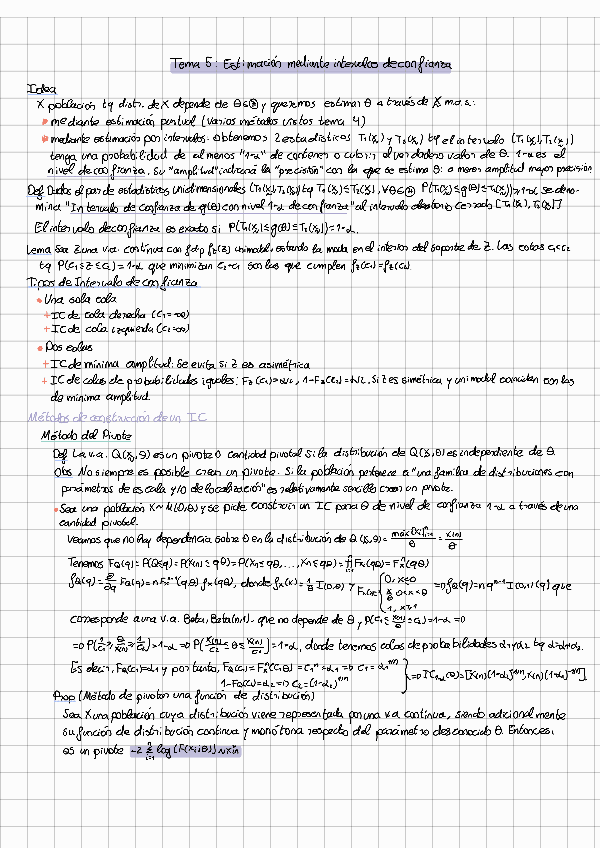 Tema 5: Estimación mediante intervalos de confianza
Idea
X población tq distr. de X depende de θ∈Θ y queremos estimar θ a través de X m.a.s.:
• mediante estimación puntual (varios métodos vistos tema 4)
• mediante estimación por intervalos: obtenemos 2 estadísticos T₁(X) y T₂(X) tq el intervalo (T₁(X), T₂(X))
tenga una probabilidad de al menos "1-α" de contener o cubrir el verdadero valor de θ. 1-α es el
nivel de confianza. Su "amplitud" indicará la "precisión" con la que se estima θ: a menor amplitud mayor precisión
Def Dado el par de estadísticos unidimensionales (T₁(X), T₂(X)) tq T₁(X) ≤ T₂(X), ∀θ∈Θ P(T₁(X) ≤ g(θ) ≤ T₂(X)) ≥ 1-α, se deno-
mina "Intervalo de confianza de g(θ) con nivel 1-α de confianza" al intervalo aleatorio cerrado [T₁(X), T₂(X)]
El intervalo de confianza es exacto si P(T₁(X) ≤ g(θ) ≤ T₂(X)) = 1-α.
Lema Sea Z una v.a. continua con fdp f_Z(z) unimodal, estando la moda en el interior del soporte de Z. Las cotas c₁<c₂
tq P(c₁ ≤ Z ≤ c₂) = 1-α que minimizan c₂-c₁ son las que cumplen f_Z(c₁) = f_Z(c₂)
Tipos de Intervalo de confianza
• Una sola cola
+ IC de cola derecha (c₁ = -∞)
+ IC de cola izquierda (c₂ = ∞)
• Dos colas
+ IC de mínima amplitud: Se evita si Z es asimétrica
+ IC de colas de probabilidades iguales: F_Z(c₁) = α/2, 1-F_Z(c₂) = α/2. Si Z es simétrica y unimodal coinciden con las
de mínima amplitud
Métodos de construcción de un IC
Método del Pivote
Def La v.a. Q(X, θ) es un pivote o cantidad pivotal si la distribución de Q(X, θ) es independiente de θ
Obs No siempre es posible crear un pivote. Si la población pertenece a "una familia de distribuciones con
parámetros de escala y/o de localización" es relativamente sencillo crear un pivote.
• Sea una población X~U(0,θ) y se pide construir un IC para θ de nivel de confianza 1-α a través de una
cantidad pivotal.
Veamos que no hay dependencia sobre θ en la distribución de Q(X, θ) = max{Xᵢ}ⁿᵢ₌₁/θ = X(n)/θ
Tenemos F_Q(q) = P(Q≤q) = P(X(n) ≤ qθ) = P(X₁ ≤ qθ, ..., Xₙ ≤ qθ) = ∏ⁿᵢ₌₁ F_X(qθ) = F_Xⁿ(qθ)
f_Q(q) = ∂/∂q F_Q(q) = n F_Xⁿ⁻¹(qθ) f_X(qθ), donde f_X(x) = 1/θ I(0,θ) y F_X(x) = { 0, x≤0; x/θ, 0<x<θ; 1, x≥θ ⇒ f_Q(q) = n qⁿ⁻¹ I(0,1)(q) que
corresponde a una v.a. Beta, Beta(n,1), que no depende de θ y P(c₁ ≤ X(n)/θ ≤ c₂) = 1-α ⇒
⇒ P(1/c₂ ≤ θ/X(n) ≤ 1/c₁) = 1-α ⇒ P(X(n)/c₂ ≤ θ ≤ X(n)/c₁) = 1-α, donde tenemos colas de probabilidades α₁ y α₂ tq α=α₁+α₂.
Es decir, F_Q(c₁) = α₁ y por tanto, F_Q(c₁) = F_Xⁿ(c₁θ) = c₁ⁿ = α₁ ⇒ c₁ = α₁^(1/n)
1-F_Q(c₂) = α₂ ⇒ c₂ = (1-α₂)^(1/n) } ⇒ IC₁₋α(θ) = [X(n)(1-α₂)^(-1/n), X(n)(α₁)^(-1/n)]
Prop (Método de pivotar una función de distribución)
Sea X una población cuya distribución viene representada por una v.a continua, siendo adicionalmente
su función de distribución continua y monótona respecto del parámetro desconocido θ. Entonces,
es un pivote -2 Σⁿᵢ₌₁ log(F(Xᵢ;θ)) ~ χ²₂ₙ